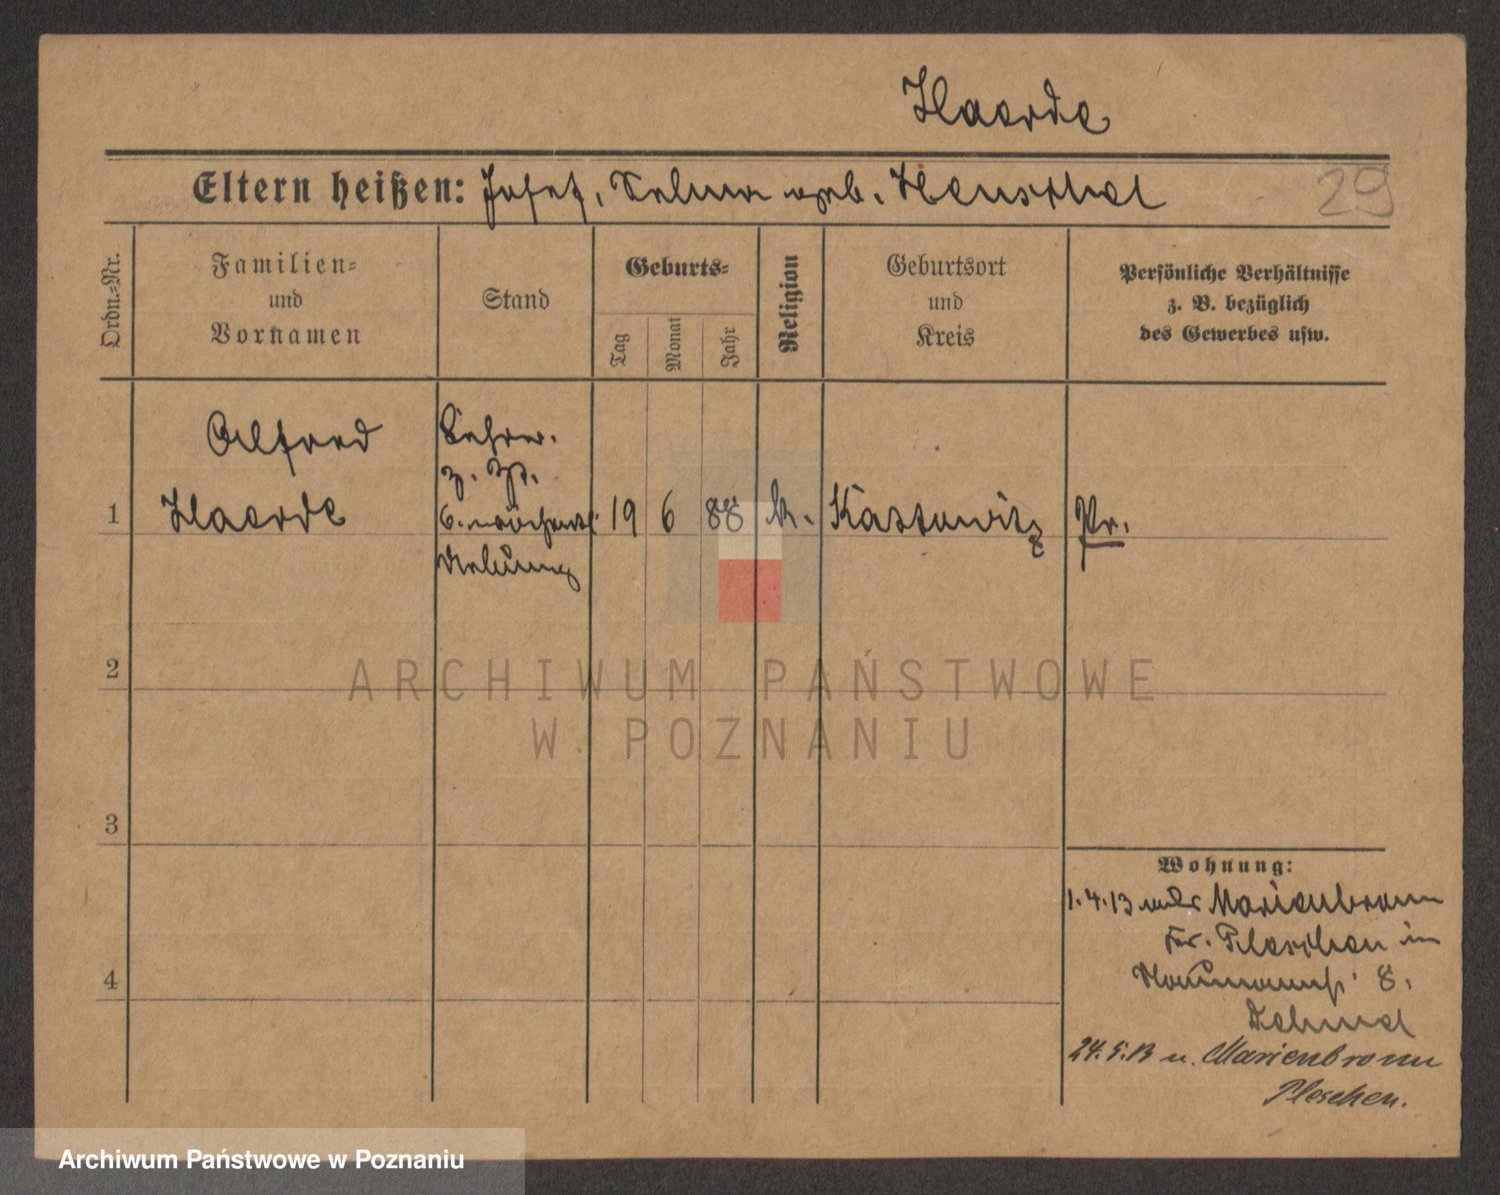 Haerde
Eltern heißen: Josef, Selma geb. Henschel
29
Ordn.=Nr.
Familien=
und
Vornamen
Stand
Geburts=
Tag
Monat
Jahr
Religion
Geburtsort
und
Kreis
Persönliche Verhältnisse
z. B. bezüglich
des Gewerbes usw.
1
Alfred
Haerde
Lehrer.
z. Zt.
6. wöchentl.
Uebung
19
6
88
k.
Kattowitz
Pr.
2
ARCHIWUM PAŃSTWOWE
W POZNANIU
3
Wohnung:
1.4.13 Marienbronn
Kr. Pleschen in
Naumannst 8.
24.5.13 n. Marienbronn
Pleschen.
4
Archiwum Państwowe w Poznaniu